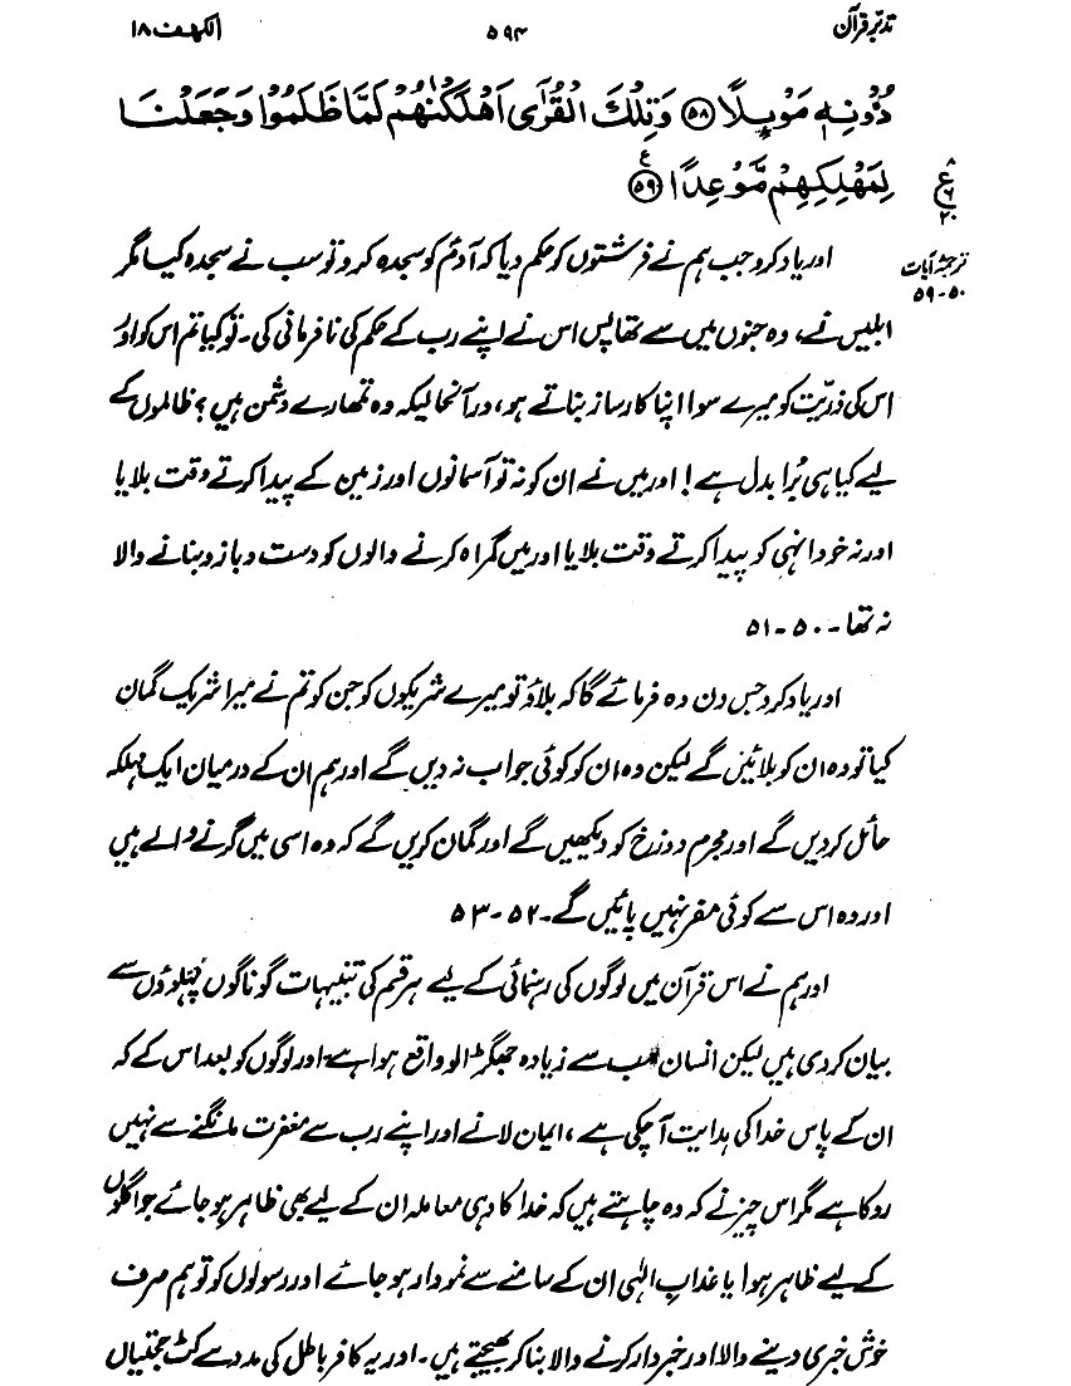 تدبّرِ قرآن ۵۹۴ الکہف ۱۸
دُوْنِهٖ مَوْىِٕلًا ﴿۵۸﴾ وَتِلْكَ الْقُرٰٓى اَهْلَكْنٰهُمْ لَمَّا ظَلَمُوْا وَجَعَلْنَا
لِمَهْلِكِهِمْ مَّوْعِدًا ﴿۵۹﴾
ترجمۂ آیات
۵۰-۵۹
اور یاد کرو جب ہم نے فرشتوں کو حکم دیا کہ آدمؑ کو سجدہ کرو تو سب نے سجدہ کیا مگر
ابلیس نے، وہ جنوں میں سے تھا پس اس نے اپنے رب کے حکم کی نافرمانی کی۔ تو کیا تم اس کو اور
اس کی ذرّیت کو میرے سوا اپنا کارساز بناتے ہو، درآنحالیکہ وہ تمھارے دشمن ہیں؟ ظالموں کے
لیے کیا ہی بُرا بدل ہے! اور میں نے ان کو نہ تو آسمانوں اور زمین کے پیدا کرتے وقت بلایا
اور نہ خود انہی کو پیدا کرتے وقت بلایا اور میں گمراہ کرنے والوں کو دست و بازو بنانے والا
نہ تھا۔ ۵۰-۵۱
اور یاد کرو جس دن وہ فرمائے گا کہ بلاؤ تو میرے شریکوں کو جن کو تم نے میرا شریک گمان
کیا تو وہ ان کو بلائیں گے لیکن وہ ان کو کوئی جواب نہ دیں گے اور ہم ان کے درمیان ایک مہلکہ
حائل کر دیں گے اور مجرم دوزخ کو دیکھیں گے اور گمان کریں گے کہ وہ اسی میں گرنے والے ہیں
اور وہ اس سے کوئی مفر نہیں پائیں گے۔ ۵۲-۵۳
اور ہم نے اس قرآن میں لوگوں کی رہنمائی کے لیے ہر قسم کی تنبیہات گوناگوں پہلوؤں سے
بیان کر دی ہیں لیکن انسان سب سے زیادہ جھگڑالو واقع ہوا ہے اور لوگوں کو بعد اس کے کہ
ان کے پاس خدا کی ہدایت آ چکی ہے، ایمان لانے اور اپنے رب سے مغفرت مانگنے سے نہیں
روکا ہے مگر اس چیز نے کہ وہ چاہتے ہیں کہ خدا کا وہی معاملہ ان کے لیے بھی ظاہر ہو جائے جو اگلوں
کے لیے ظاہر ہوا یا عذابِ الٰہی ان کے سامنے سے نمودار ہو جائے اور رسولوں کو تو ہم صرف
خوش خبری دینے والا اور خبردار کرنے والا بنا کر بھیجتے ہیں۔ اور یہ کافر باطل کی مدد سے کٹ حجتیاں